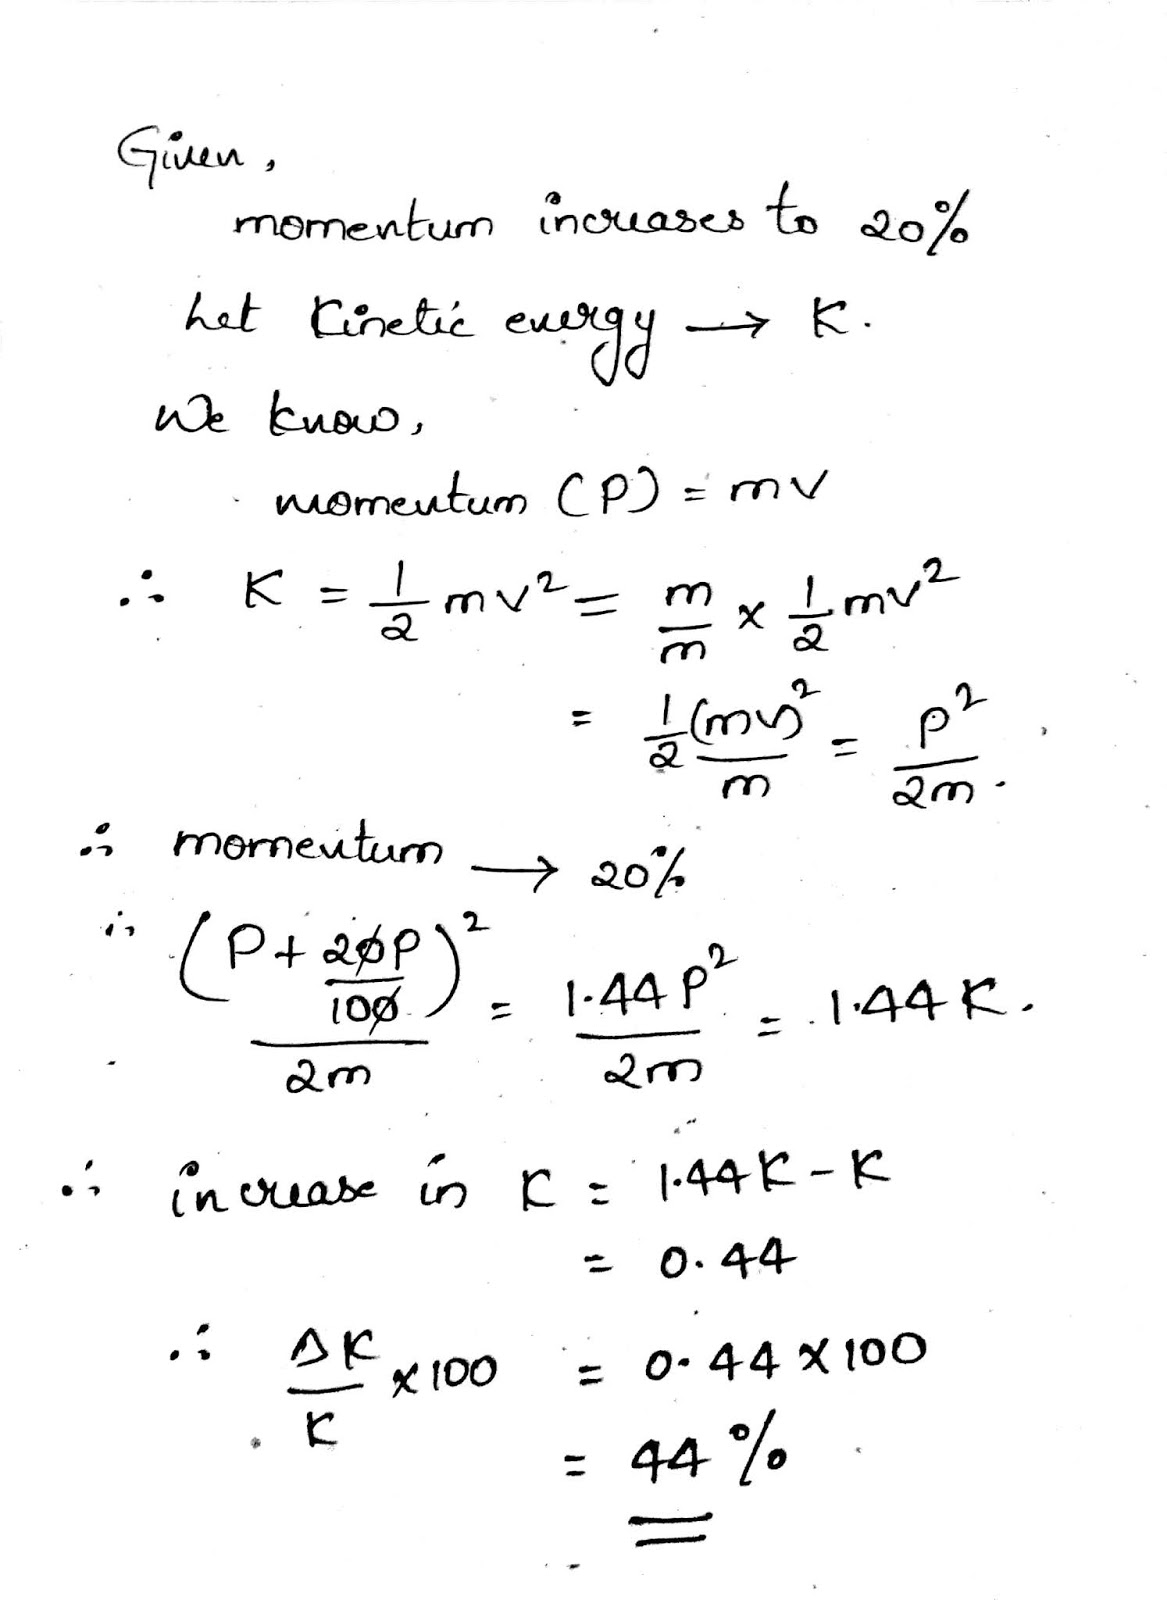 Given,
momentum increases to 20%
Let Kinetic energy → K.
We know,
momentum (P) = mv
∴ K = 1/2 mv² = m/m × 1/2 mv²
= 1/2 (mv)²/m = P²/2m.
∴ momentum → 20%
∴ (P + 20P/100)²/2m = 1.44P²/2m = 1.44K.
∴ increase in K = 1.44K - K
= 0.44
∴ ΔK/K × 100 = 0.44 × 100
= 44%